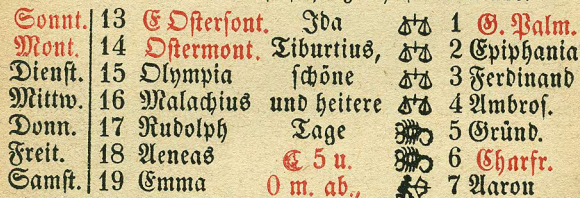 Sonnt. 13 E Ostersont. Ida 1 G. Palm.
Mont. 14 Ostermont. Tiburtius, 2 Epiphania
Dienst. 15 Olympia schöne 3 Ferdinand
Mittw. 16 Malachius und heitere 4 Ambros.
Donn. 17 Rudolph Tage 5 Gründ.
Freit. 18 Aeneas ☾ 5 u. 6 Charfr.
Samst. 19 Emma 0 m. ab., 7 Aaron